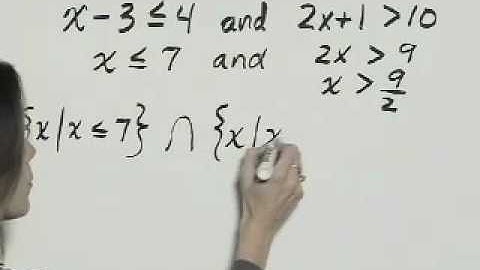 x - 3 ≤ 4 and 2x + 1 > 10
x ≤ 7 and 2x > 9
x > 9/2
{x | x ≤ 7} ∩ {x | x